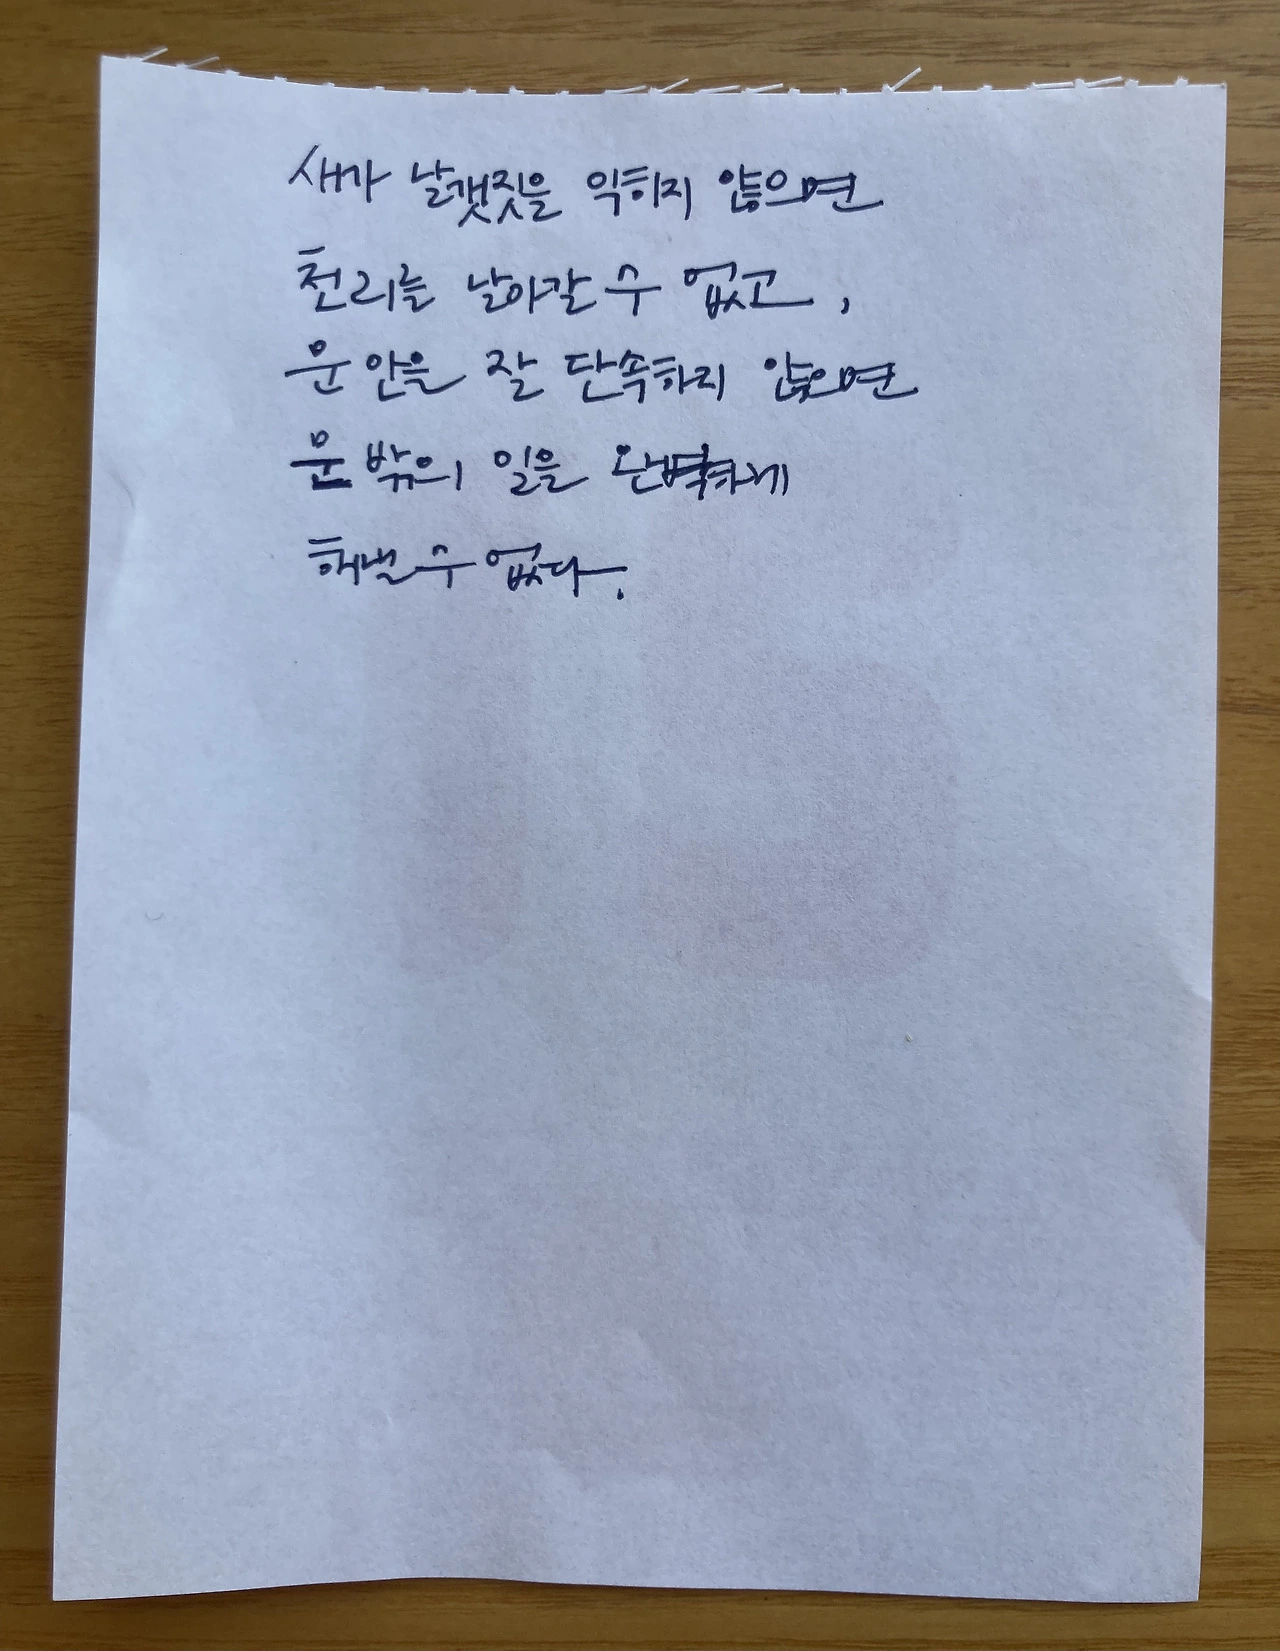 새가 날갯짓을 익히지 않으면
천리를 날아갈 수 없고,
문 안을 잘 단속하지 않으면
문 밖의 일을 완벽하게
해낼 수 없다.